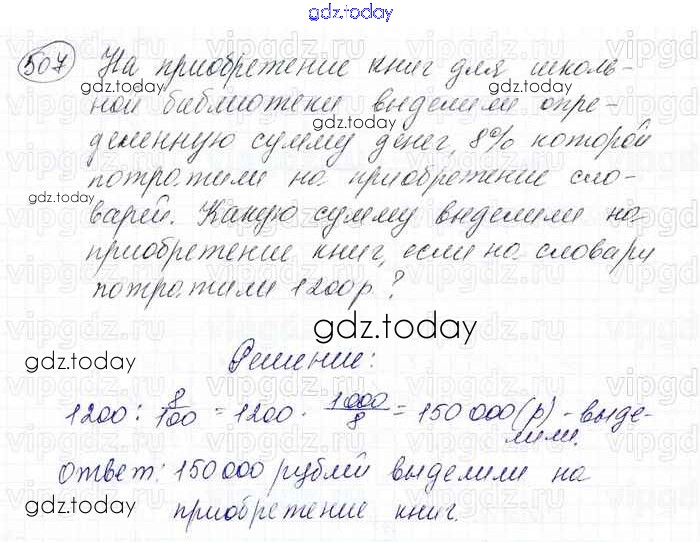 gdz.today
507 На приобретение книг для школь-
ной библиотеки выделили опре-
деленную сумму денег, 8% которой
потратили на приобретение сло-
варей. Какую сумму выделили на
приобретение книг, если на словари
потратили 1200р?
Решение:
1200 : 8/100 = 1200 · 1000/8 = 150 000 (р) - выде-
лили.
Ответ: 150 000 рублей выделили на
приобретение книг.